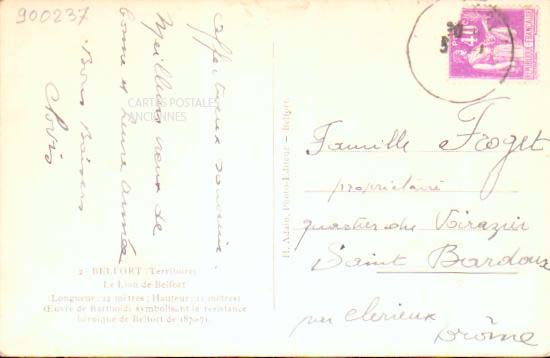 900237
Affectueux souvenir.
Meilleurs vœux de
bonne et heureuse année
Bons Baisers
Clovis
CARTES POSTALES
ANCIENNES
2 BELFORT (Territoire)
Le Lion de Belfort
(Longueur : 22 mètres ; Hauteur : 11 mètres)
Œuvre de Bartholdi symbolisant la résistance
héroïque de Belfort de 1870-71.
H. Adam, Photo-Editeur — Belfort.
40
POSTES
REPUBLIQUE FRANÇAISE
Famille Froget
propriétaire
quartier du Virazier
Saint Bardoux
par Clerieux
Drôme